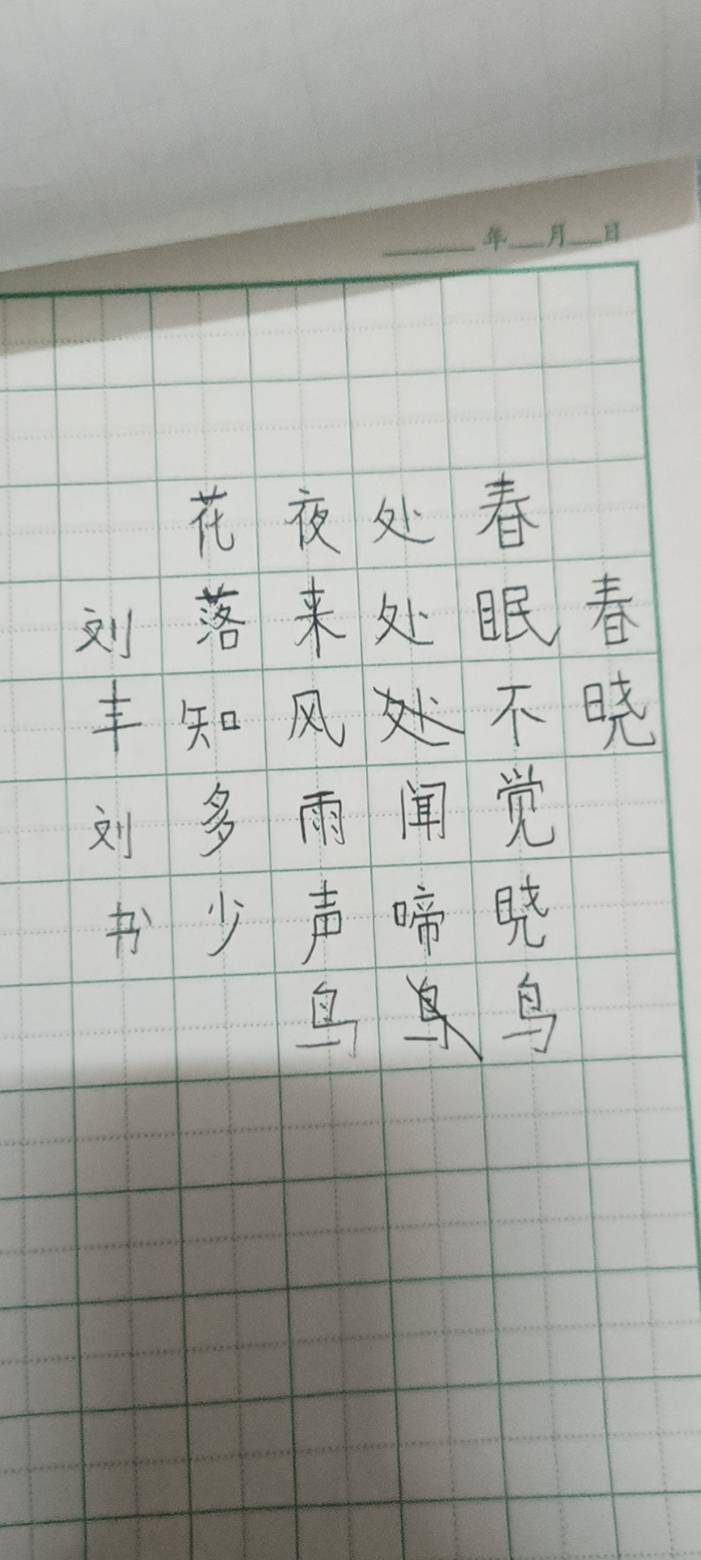 年 月 日
春晓
春眠不觉晓鸟
处处处闻啼鸟
夜来风雨声鸟
花落知多少
刘丰刘书